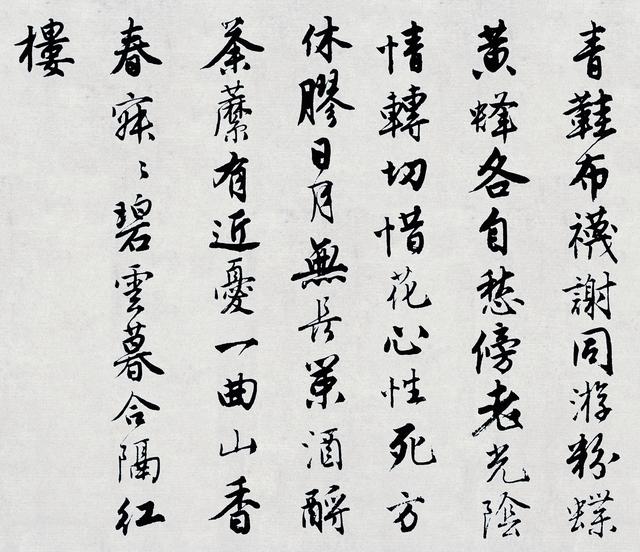 青鞵布襪謝同游粉蝶
黃蜂各自愁傍老光陰
情轉切惜花心性死方
休膠日月無長策酒酹
荼蘼有近憂一曲山香
春寂〻碧雲暮合隔紅
樓